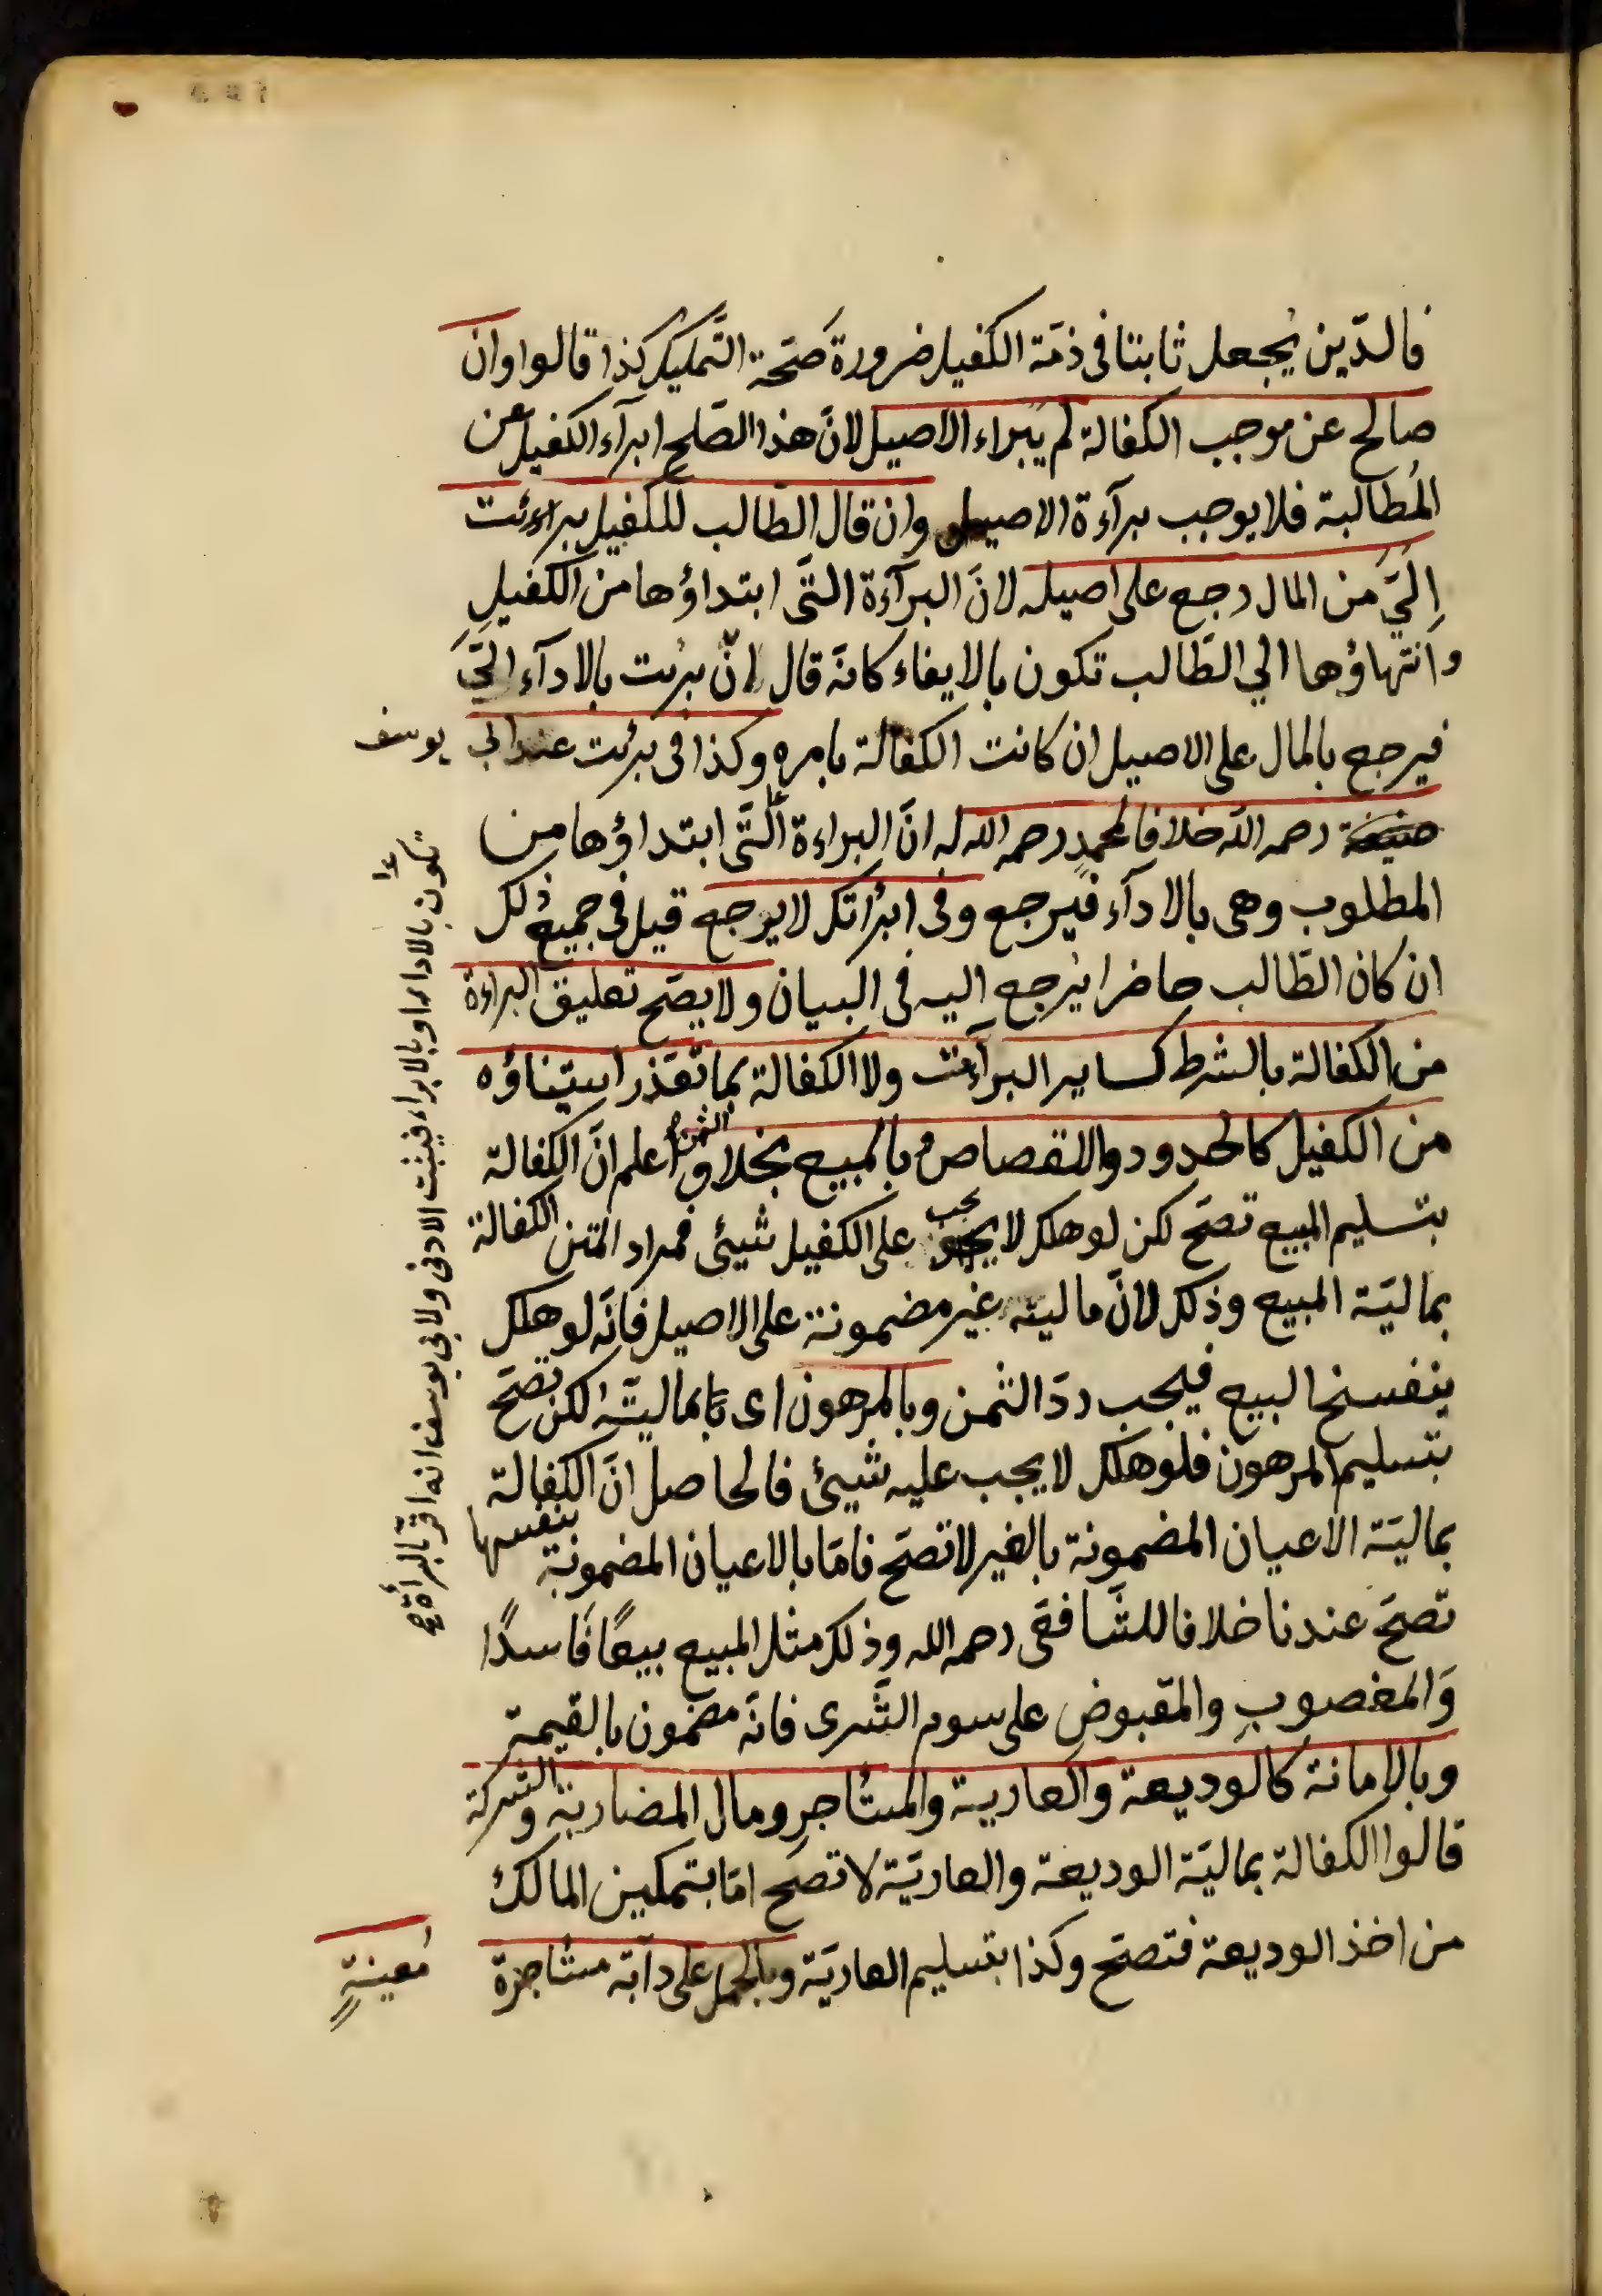 فالدّين يُجعل ثابتا فى ذمّة الكفيل ضرورة صَحّة التّمليك كذا قالوا وان
صالح عن موجب الكفالة لم يبراء الاصيل لانّ هذا الصّلح ابرآء الكفيل عن
المُطالبة فلا يوجب برآءة الاصيل وان قال الطّالب للكفيل براءئت
اِلَيَّ من المال رجع على اصيله لانّ البرآءة الّتى ابتداؤها من الكفيلِ
وانتهاؤها الي الطّالب تكون بالايفاء كانّه قال انّ برئت بالادآء الَيَّ
فيرجع بالمال على الاصيل ان كانت الكفالة بامره وكذا فى برئت عند ابى يوسف
رحمه اللّه خلافا لمحمدٍ رحمه الله له انّ البراءة الّتى ابتداؤها من
المطلوب وهى بالادآء فيرجع وفى ابرأتك لا يرجع قيل فى جميع ذلك
ان كان الطّالب حاضرا يُرجع اليه فى البيان ولا يصّح تعليق البراءة
من الكفالة بالشرط كساير البرآءت ولا الكفالة بما تعّذر استيفاؤه
من الكفيل كالحدود والقصاص وبالمبيع بخلاف الثّمن اعلم انّ الكفالة
بتسليم المبيع تصّح لكن لو هلك لا يجب على الكفيل شيئى فمراد المتن الكفالة
بماليّة المبيع وذلك لانّ ماليته غير مضمونة على الاصيل فانّه لو هلك
ينفسخ البيع فيجب ردّ الثمن وبالمرهون اى بماليّته لكن تصّح
بتسليم المرهون فلو هلك لا يجب عليه شيئ فالحاصل انّ الكفالة
بماليّة الاعيان المضمونة بالغير لا تصّح فامّا بالاعيان المضمونة بنفسها
تصحّ عندنا خلافا للشّافعى رحمه الله وذلك مثل المبيع بيعًا فَاسدًا
وَالمغصوبِ والمقبوض على سوم الشّرى فانّه مضمون بالقيمة
وبالامانة كالوديعة والعارية والمستأجر ومال المضاربة والشركة
قالوا الكفالة بماليّة الوديعة والعاريّة لا تصّح امّا بتمكين المالك
من اخذ الوديعة فتصّح وكذا بتسليم العاريّة وبالحمل على دآبّه مستاجرة
معينةٍ
تكون بالاداء او بالابراء فيثبت الادنى ولابى يوسف انه اقرّ بالبرأة